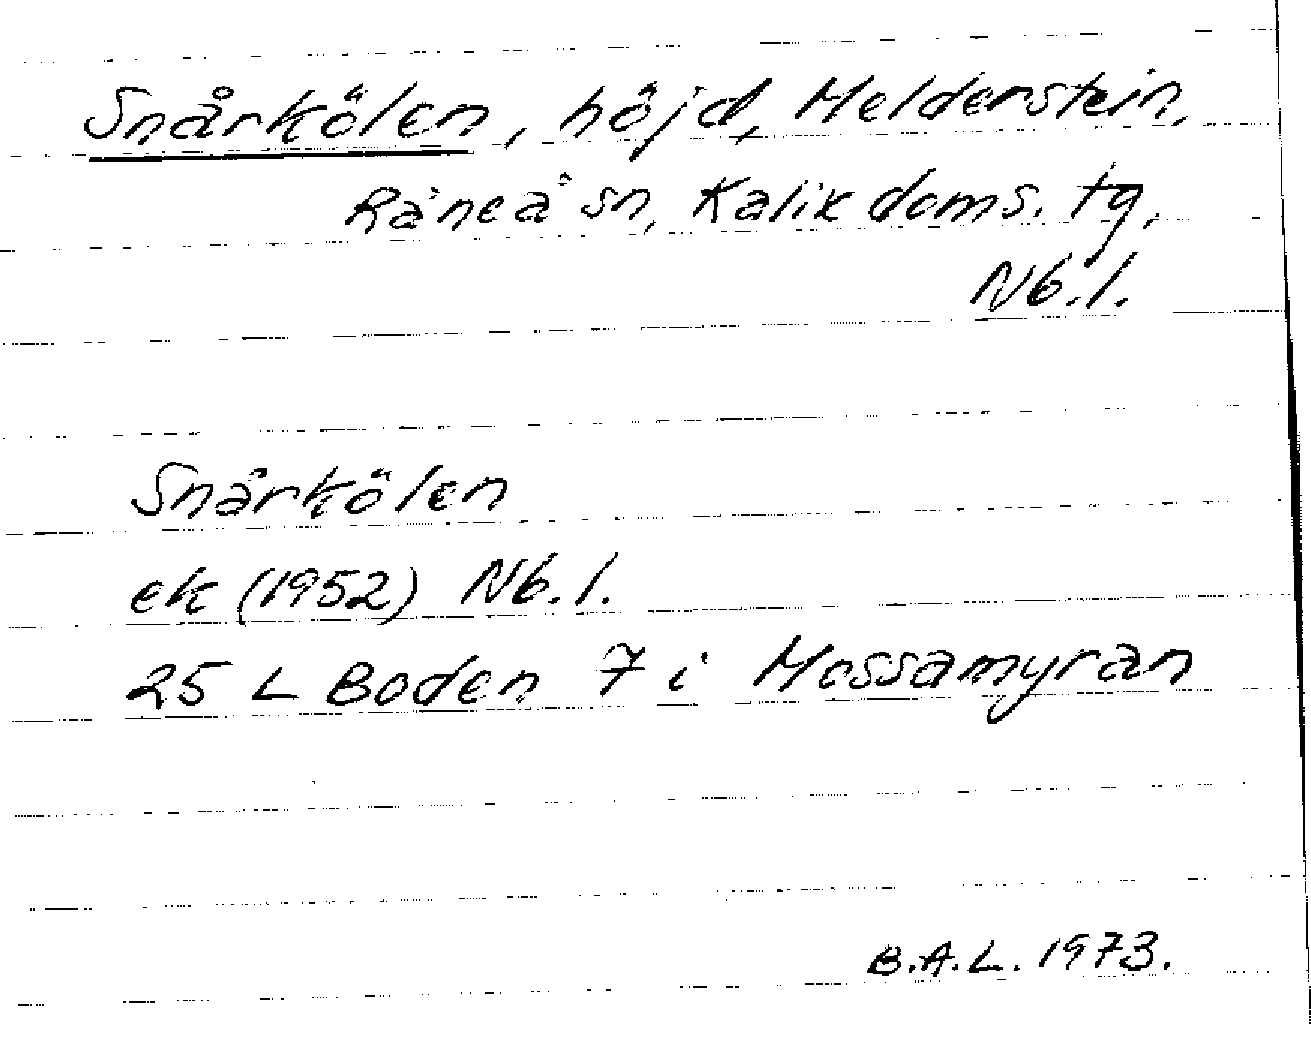 Snårkölen, höjd, Melderstein,
Råneå sn, Kalix doms. tg,
Nb. l.
Snårkölen
ek (1952) Nb. l.
25 L Boden 7 i Mossamyran
B.A.L. 1973.